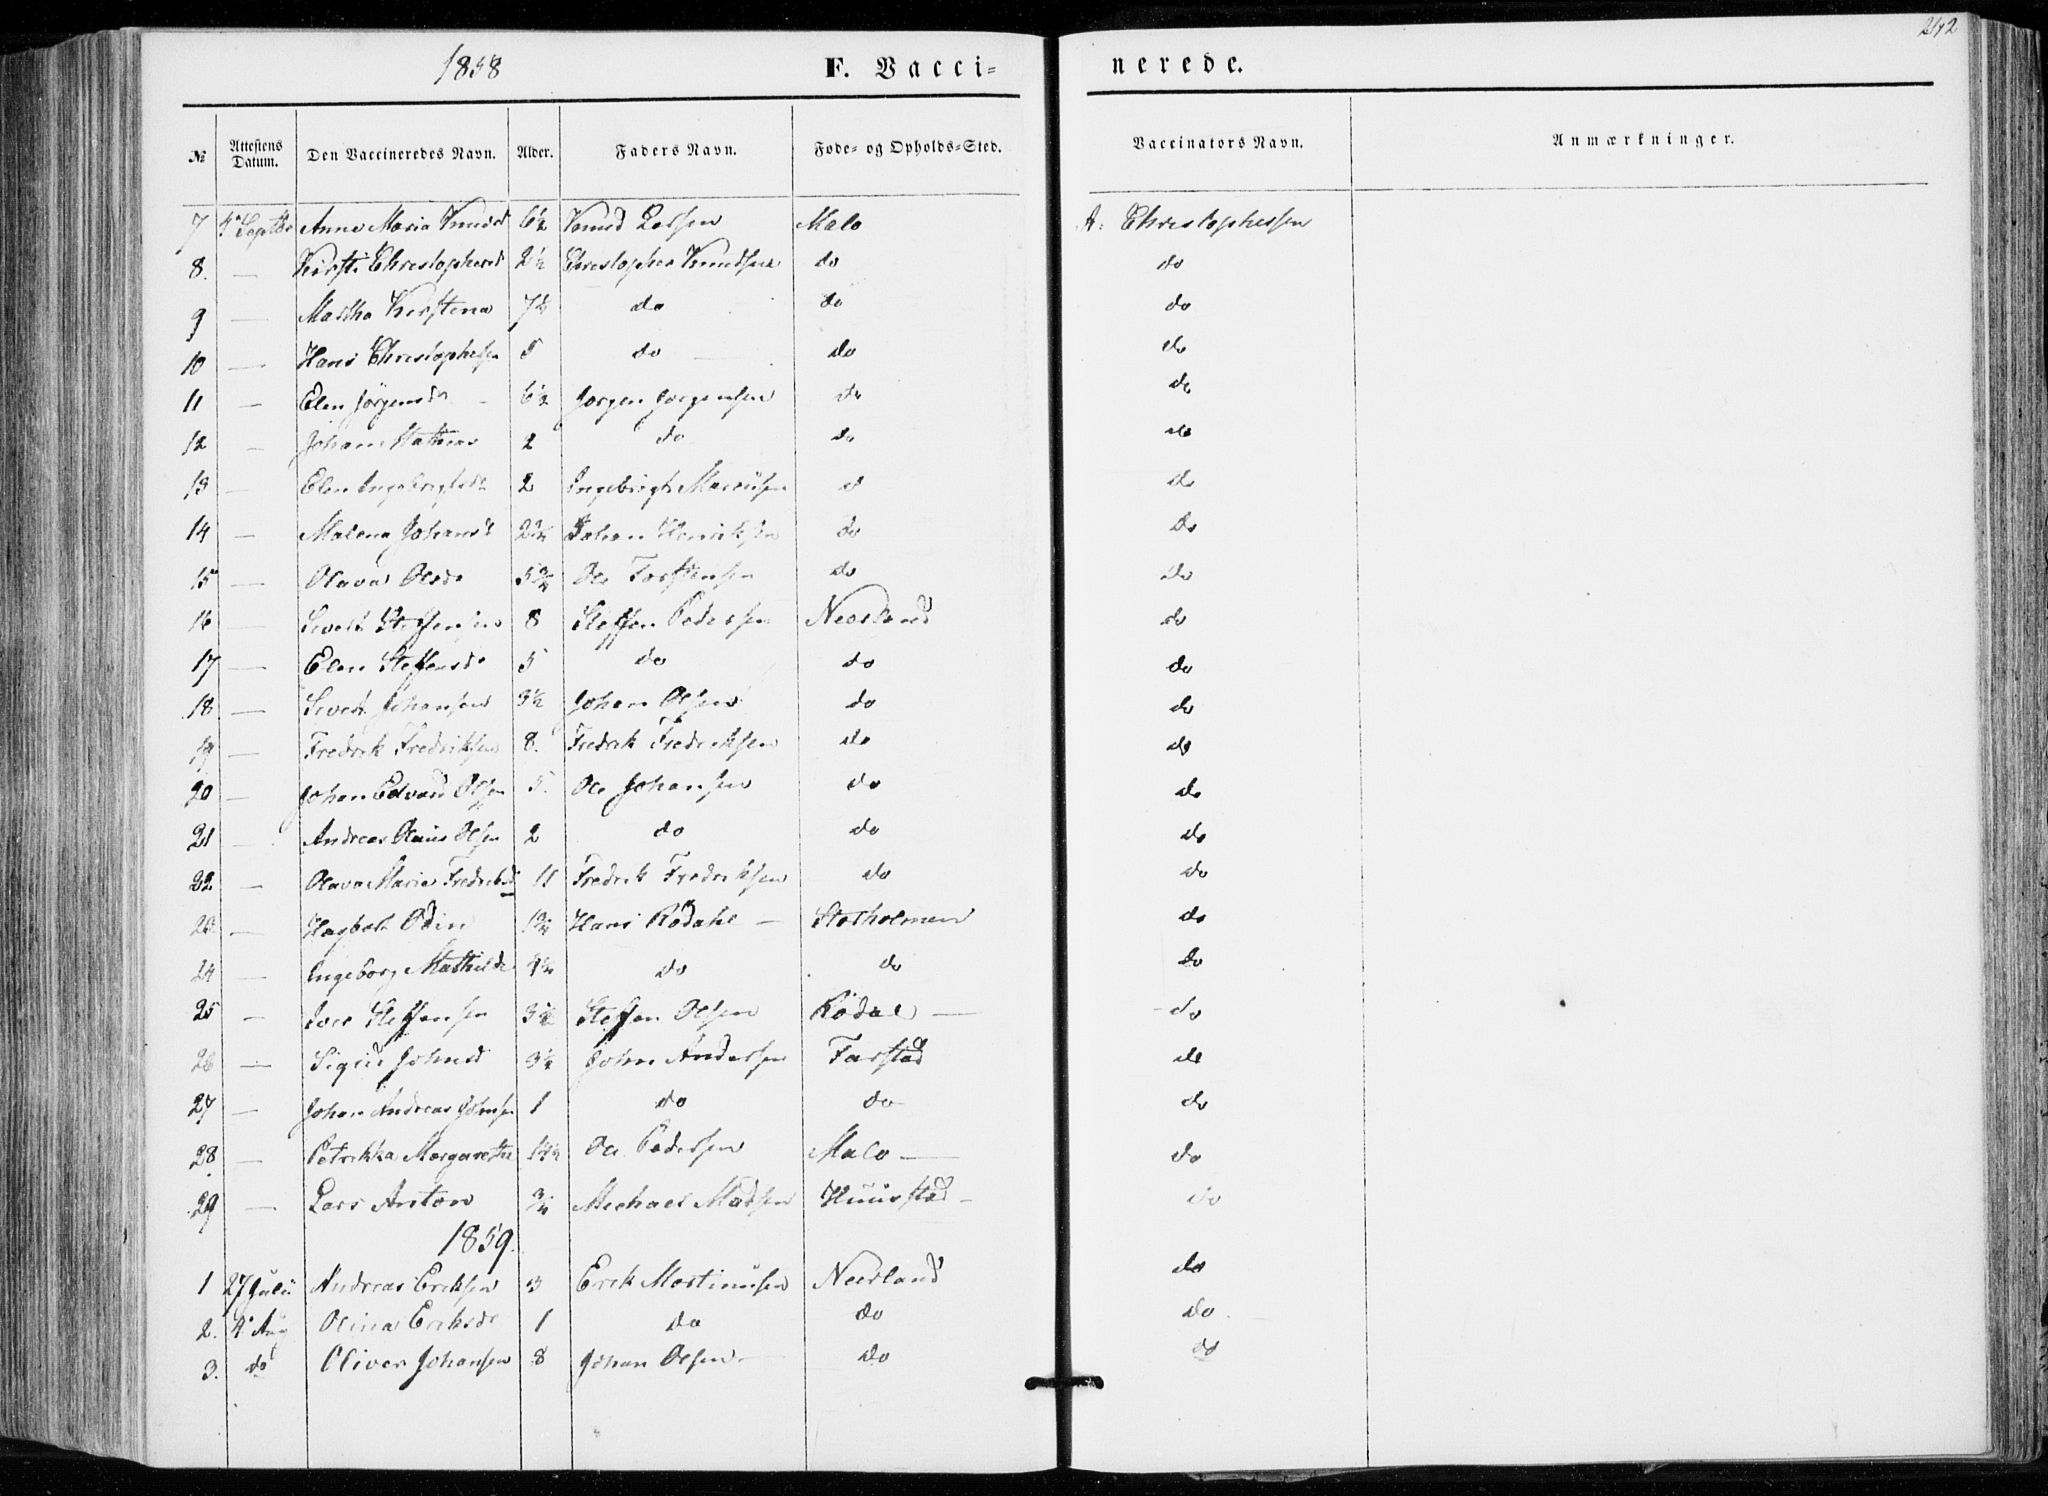 1858 F. Vacci= nerede. 242
№ Attestens Datum. Den Vaccineredes Navn. Alder. Faders Navn. Føde= og Opholds=Sted. Vaccinators Navn. Anmærkninger.
7 4 Septbr Anne Maria Knudsd 6½ Knud Larsen Malo A. Christophersen
8. — Kirsti Christophersd 2½ Christopher Knudsen do do
9 — Martha Kirstena 7½ do do do
10 — Hans Christophersen 5 do — do do
11 — Elen Jörgensda 6½ Jorgen Jorgensen do do
12 — Johan Mathias 2 do do do
13 — Elen Ingebrigtsda 2 Ingebrigt do do
14 — Malena Johansd Johan Henriksen do do
15 — Olava Olsda 5¾ Ole Torstensen do do
16 — Sivert Steffensen 8 Steffen Pedersen Neerland do
17 — Elen Steffensda 5 do do do
18 — Sivert Johansen 3½ Johan Olsen do do
19 — Fredrik Fredriksen 8. Fredrik Fredriksen do do
20 — Johan Edvard Olsen 5. Ole Johansen do do
21 — Andreas Olaus Olsen 2 do do do
22 — Olava Maria Fredriksd 11 Fredrik Fredriksen do do
23 — Hagbart Odin 1¾ Hans Rödahl — Storholmen do
24 — Ingeborg Mathilde do do do
25 — Iver Steffensen Steffen Olsen Rödal — do
26 — Sigrid Johnsd 3½ John Andersen Farstad do
27 — Johan Andreas Johnsen 1 do do do
28. — Petrikka Margarethe Ole Pedersen Malo — do
29 — Lars Anton ¾ Michael Madsen Huustad — do
1859.
1 27 Julii Andreas Eriksen 3 Erik Martinusen Neerland do
2. 4 Aug Olina Eriksda 1 do do do
3. do Oliver Johansen 8 Johan Olsen — do do